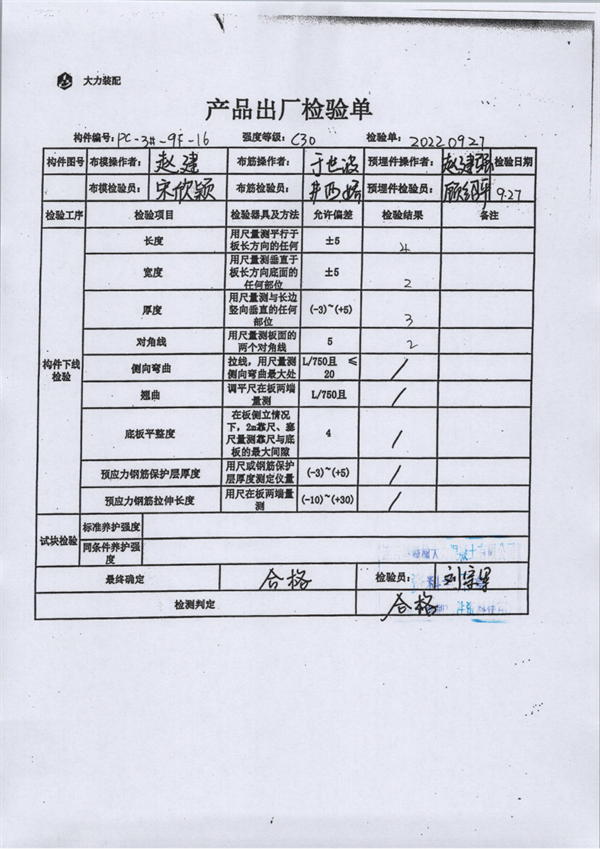 大力装配
产品出厂检验单
构件编号: PC-3#-9F-16 强度等级: C30 检验单: 20220927
构件图号 布模操作者: 赵建 布筋操作者: 于世波 预埋件操作者: 赵建强 检验日期
布模检验员: 宋欣颖 布筋检验员: 预埋件检验员: 9.27
检验工序 检验项目 检验器具及方法 允许偏差 检验结果 备注
构件下线检验
长度 用尺量测平行于板长方向的任何 ±5 4
宽度 用尺量测垂直于板长方向底面的任何部位 ±5 2
厚度 用尺量测与长边竖向垂直的任何部位 (-3)~(+5) 3
对角线 用尺量测板面的两个对角线 5 2
侧向弯曲 拉线,用尺量测侧向弯曲最大处 L/750且 ≤20 /
翘曲 调平尺在板两端量测 L/750且 /
底板平整度 在板侧立情况下,2m靠尺、塞尺量测靠尺与底板的最大间隙 4 /
预应力钢筋保护层厚度 用尺或钢筋保护层厚度测定仪量 (-3)~(+5) /
预应力钢筋拉伸长度 用尺在板两端量测 (-10)~(+30) /
试块检验 标准养护强度
同条件养护强度
最终确定 合格 检验员:
检测判定 合格